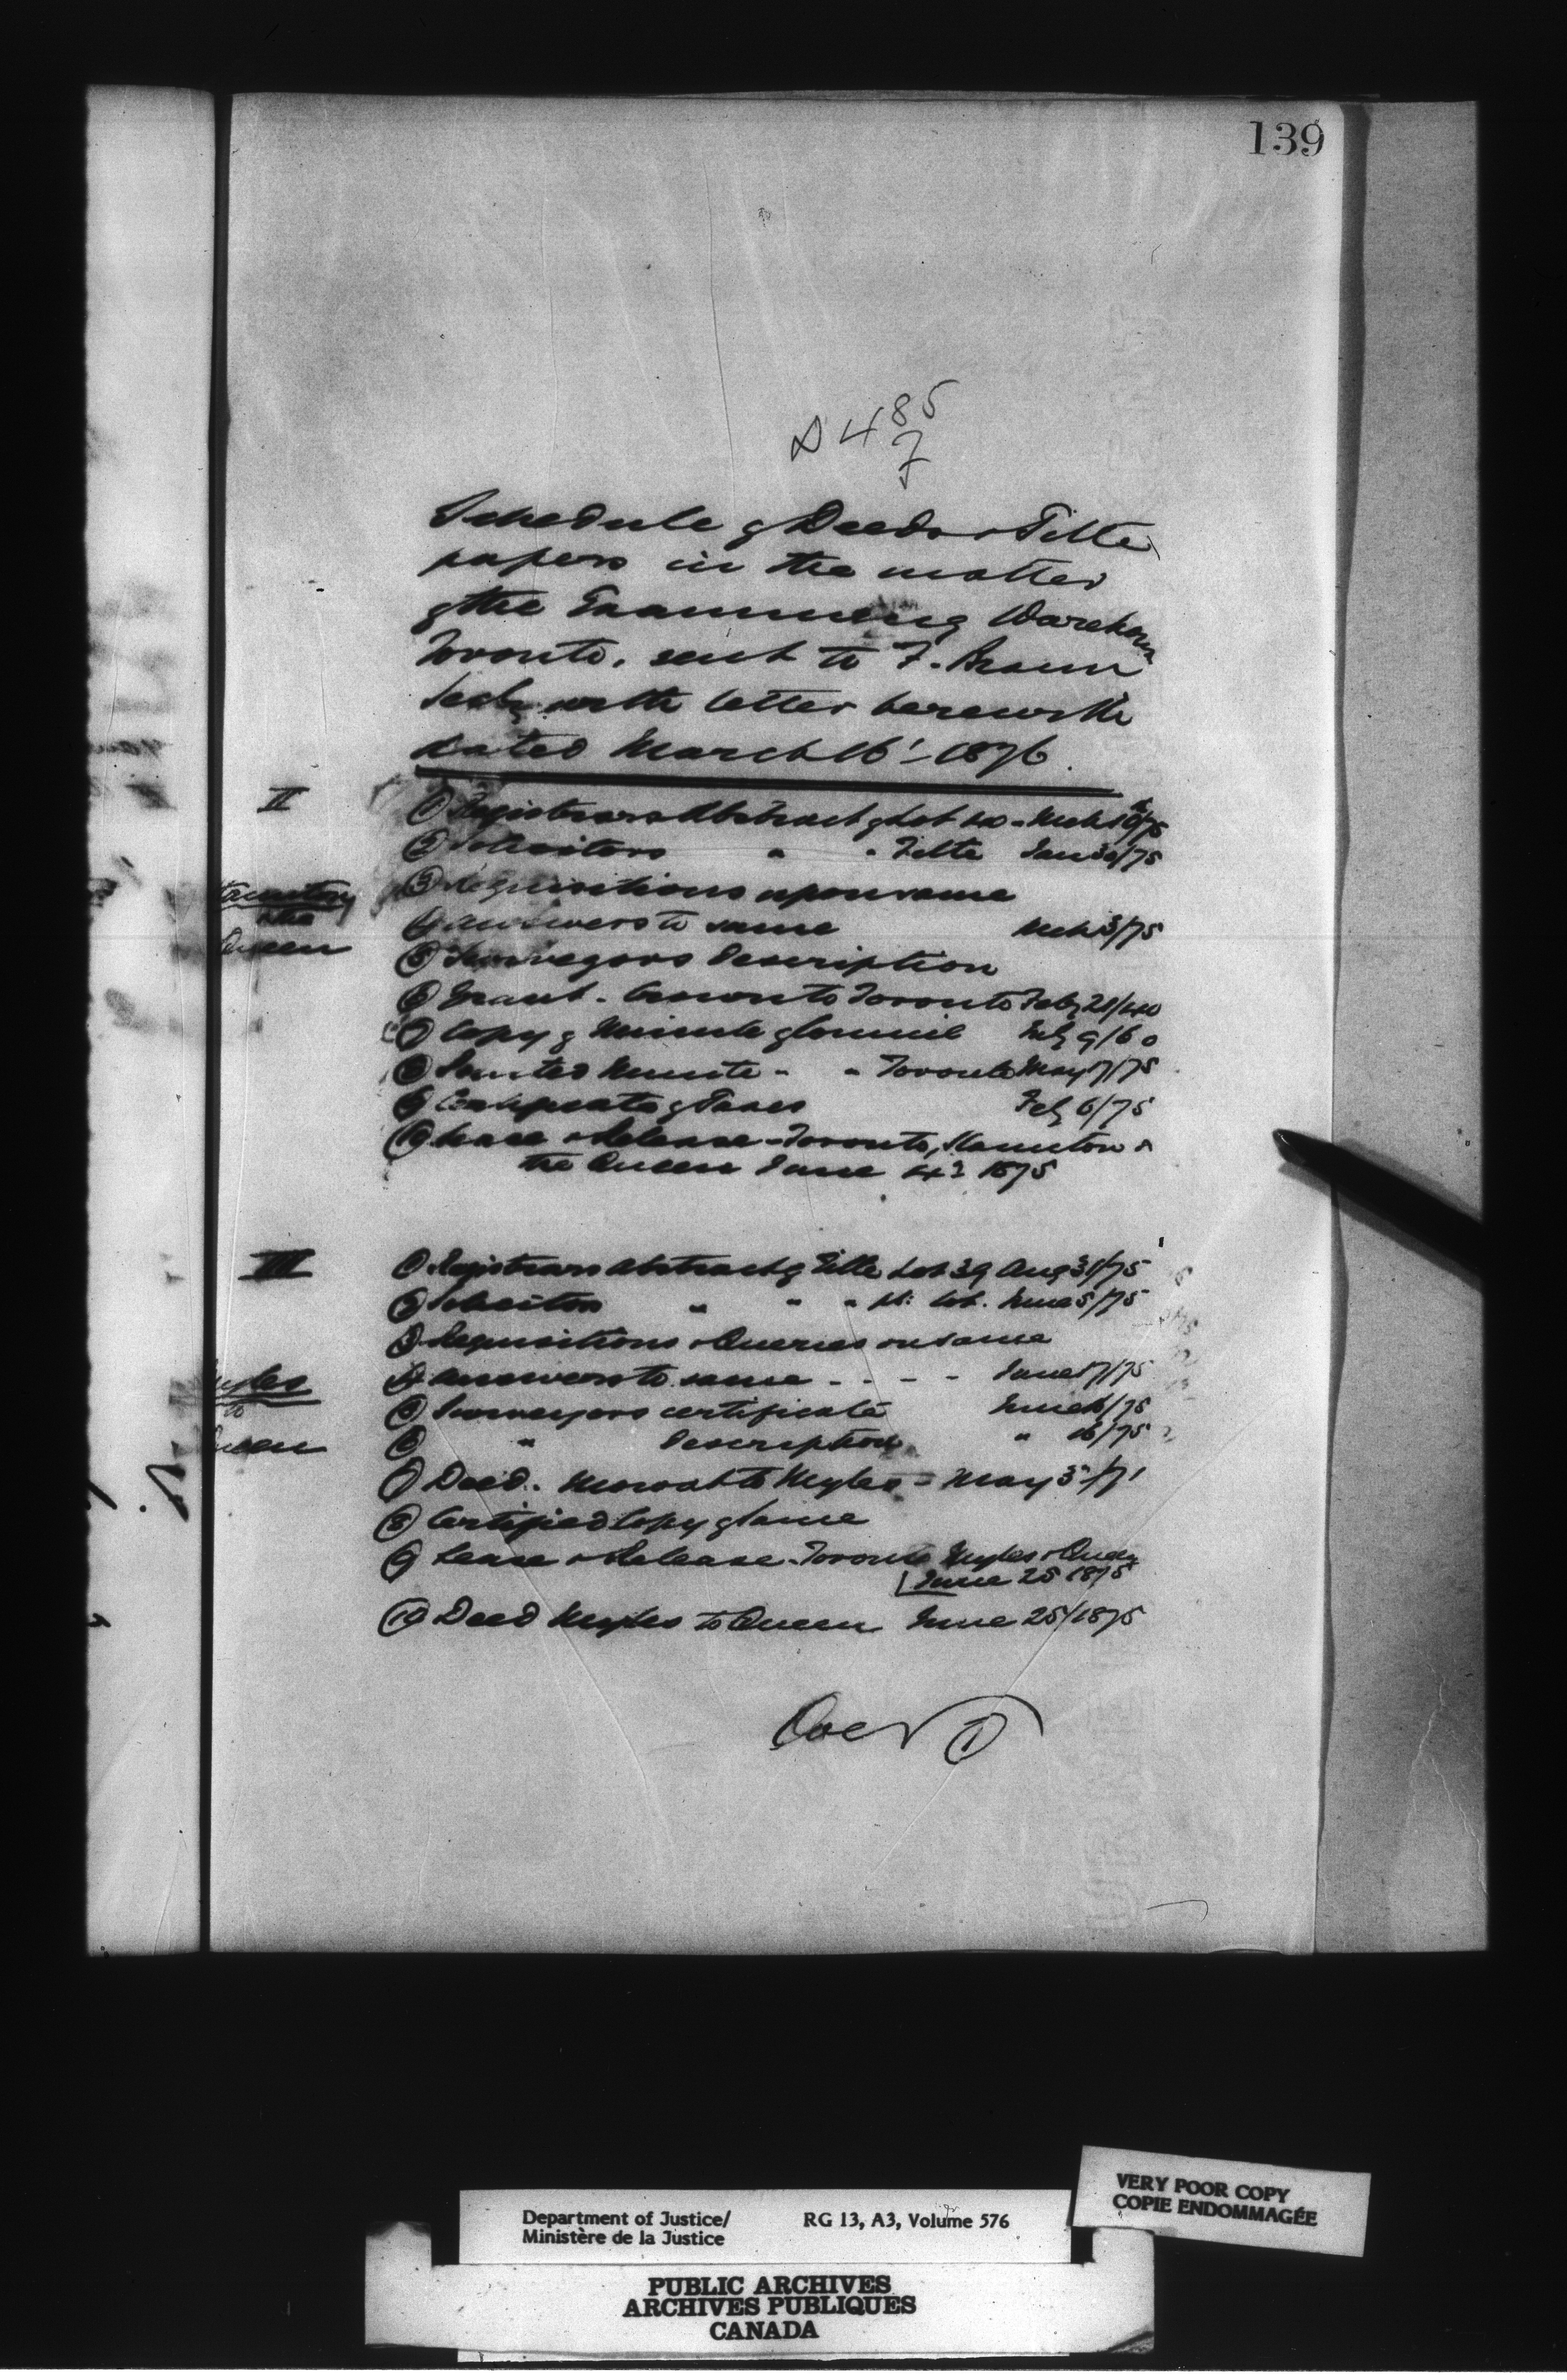 139
D 485
7
Schedule of Deeds & Title
papers in the matter
of the Examining Warehouse
Toronto, sent to F. Braun
Secty with letter herewith
dated March 16' - 1876.
II
① Registrars Abstract of Lot 40 - Mch 10/75
② Solicitors " " Title Jan 30/75
③ Requisitions upon same
the
Queen
④ Answers to same Mch 3/75
⑤ Surveyors Description
⑥ Grant - Crown to Toronto Feby 21/40
⑦ Copy of Minute of Council July 9/60
⑧ Minute - " Toronto May 17/75
⑨ Certificate of Taxes Feby 6/75
⑩ Lease & Release - Toronto, &
the Queen June 1875
III
① Registrars Abstract of Title Lot 39 Aug 31/75
② Solicitors " " " June 5/75
③ Requisitions & Queries on same
④ Answers to same - - - - June 17/75
to
Queen
⑤ Surveyors certificate June 16/75
⑥ " Description " 16/75
⑦ Deed - Mowat to Myles = May 5/71
⑧ Certified Copy of same
⑨ Lease & Release - Toronto Myles & Queen
June 25 1875
⑩ Deed Myles to Queen June 25/1875
Over ①
Department of Justice/
Ministère de la Justice
RG 13, A3, Volume 576
VERY POOR COPY
COPIE ENDOMMAGÉE
PUBLIC ARCHIVES
ARCHIVES PUBLIQUES
CANADA